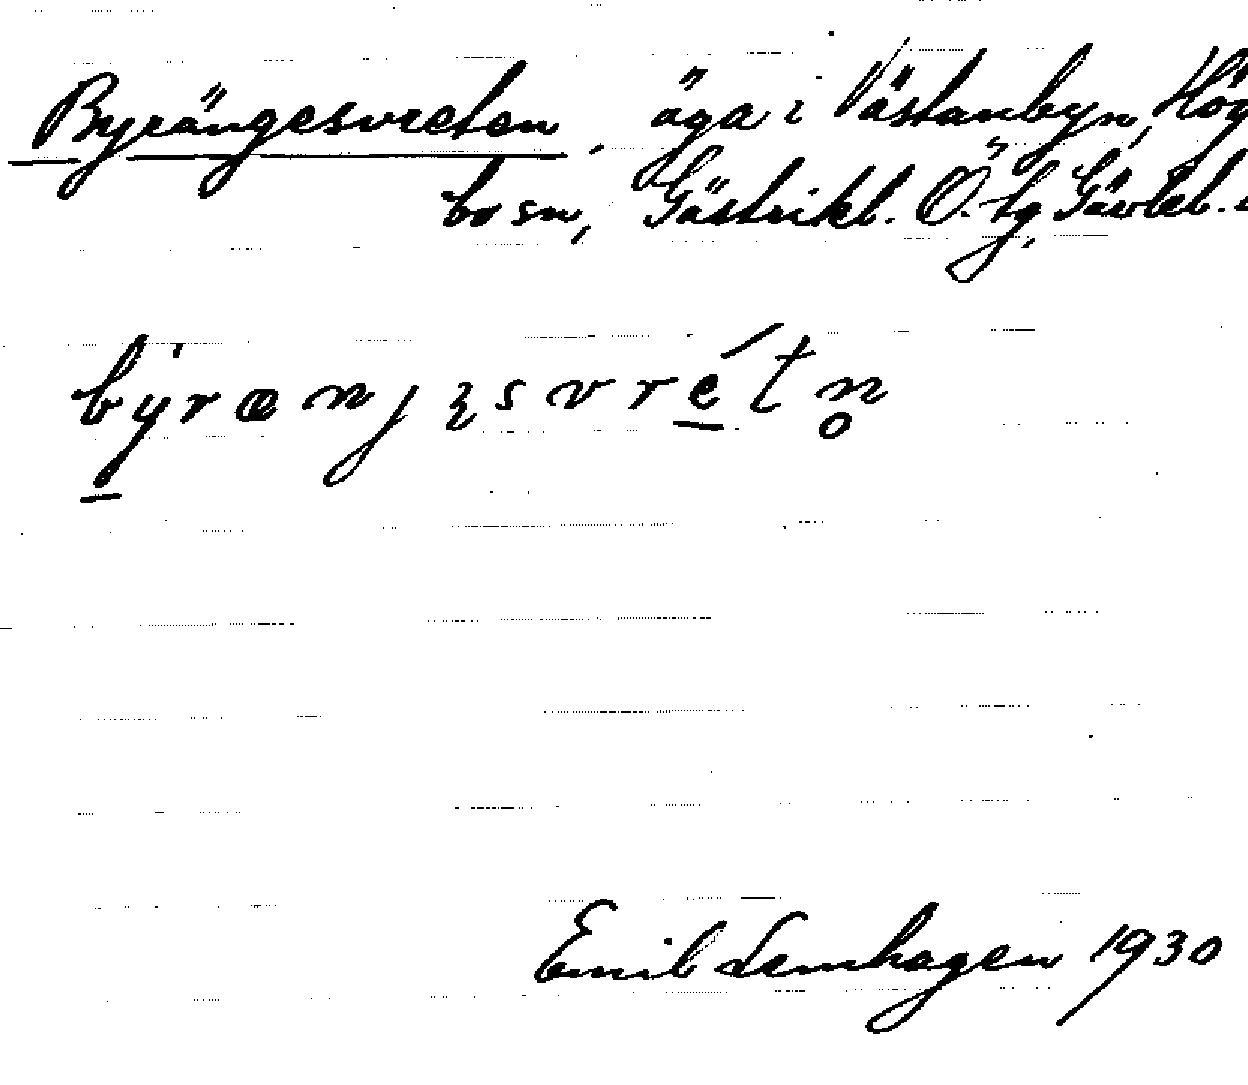 Byrängesvreten, äga i Västanbyn, Hög
bo sn, Gästrikl. Ö. tg, Gävlebl.
Emil Lemhagen 1930